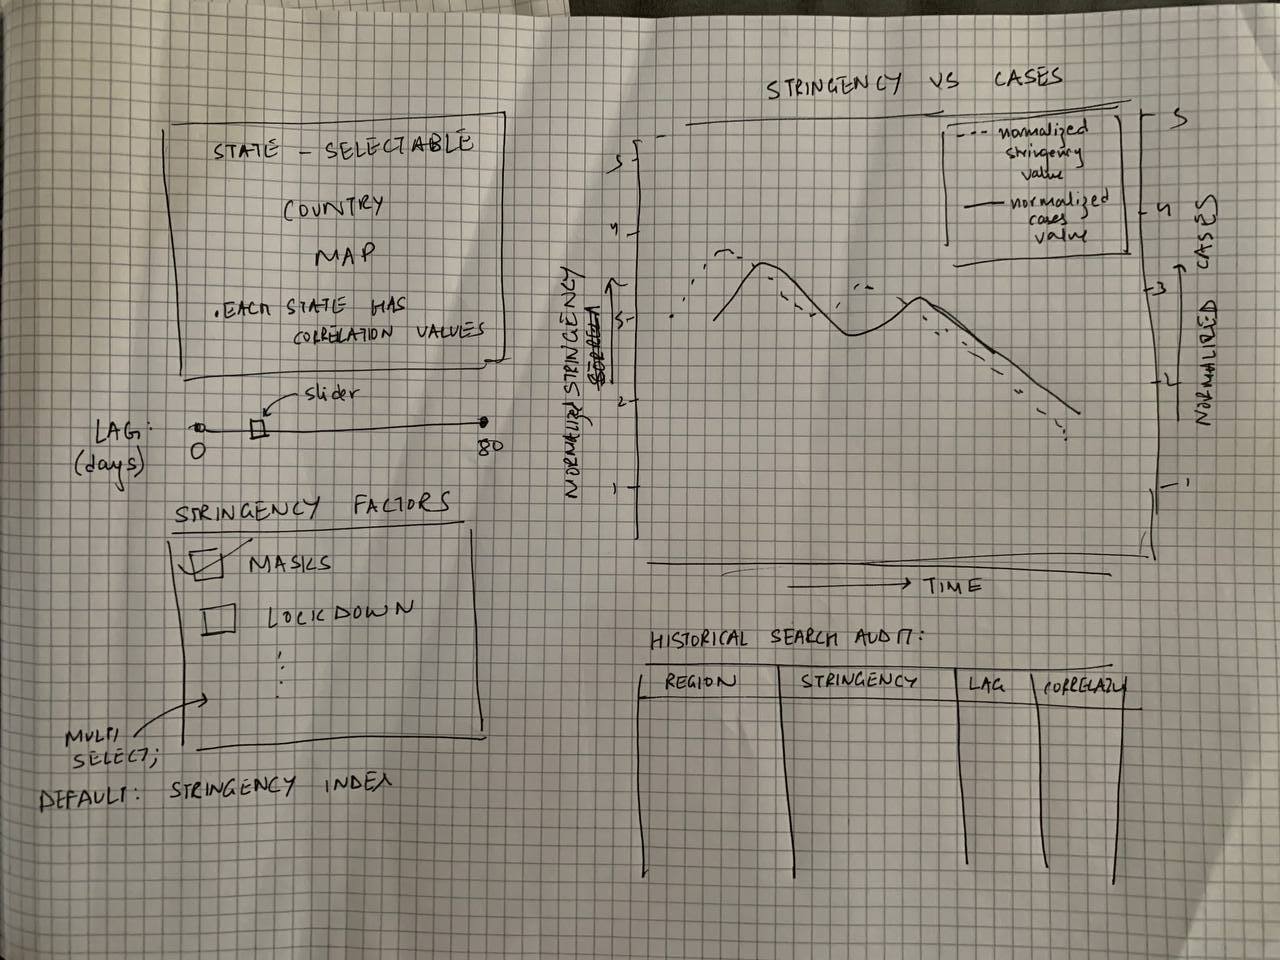 STATE - SELECTABLE
COUNTRY
MAP
. EACH STATE HAS
CORRELATION VALUES
slider
LAG:
(days)
0
80
STRINGENCY FACTORS
MASKS
LOCKDOWN
MULTI
SELECT;
DEFAULT: STRINGENCY INDEX
STRINGENCY VS CASES
--- normalized
stringency
value
— normalized
cases
value
5
4
3
2
1
NORMALized STRINGENCY
5
4
3
2
1
NORMALIZED CASES
TIME
HISTORICAL SEARCH AUDIT:
REGION STRINGENCY LAG